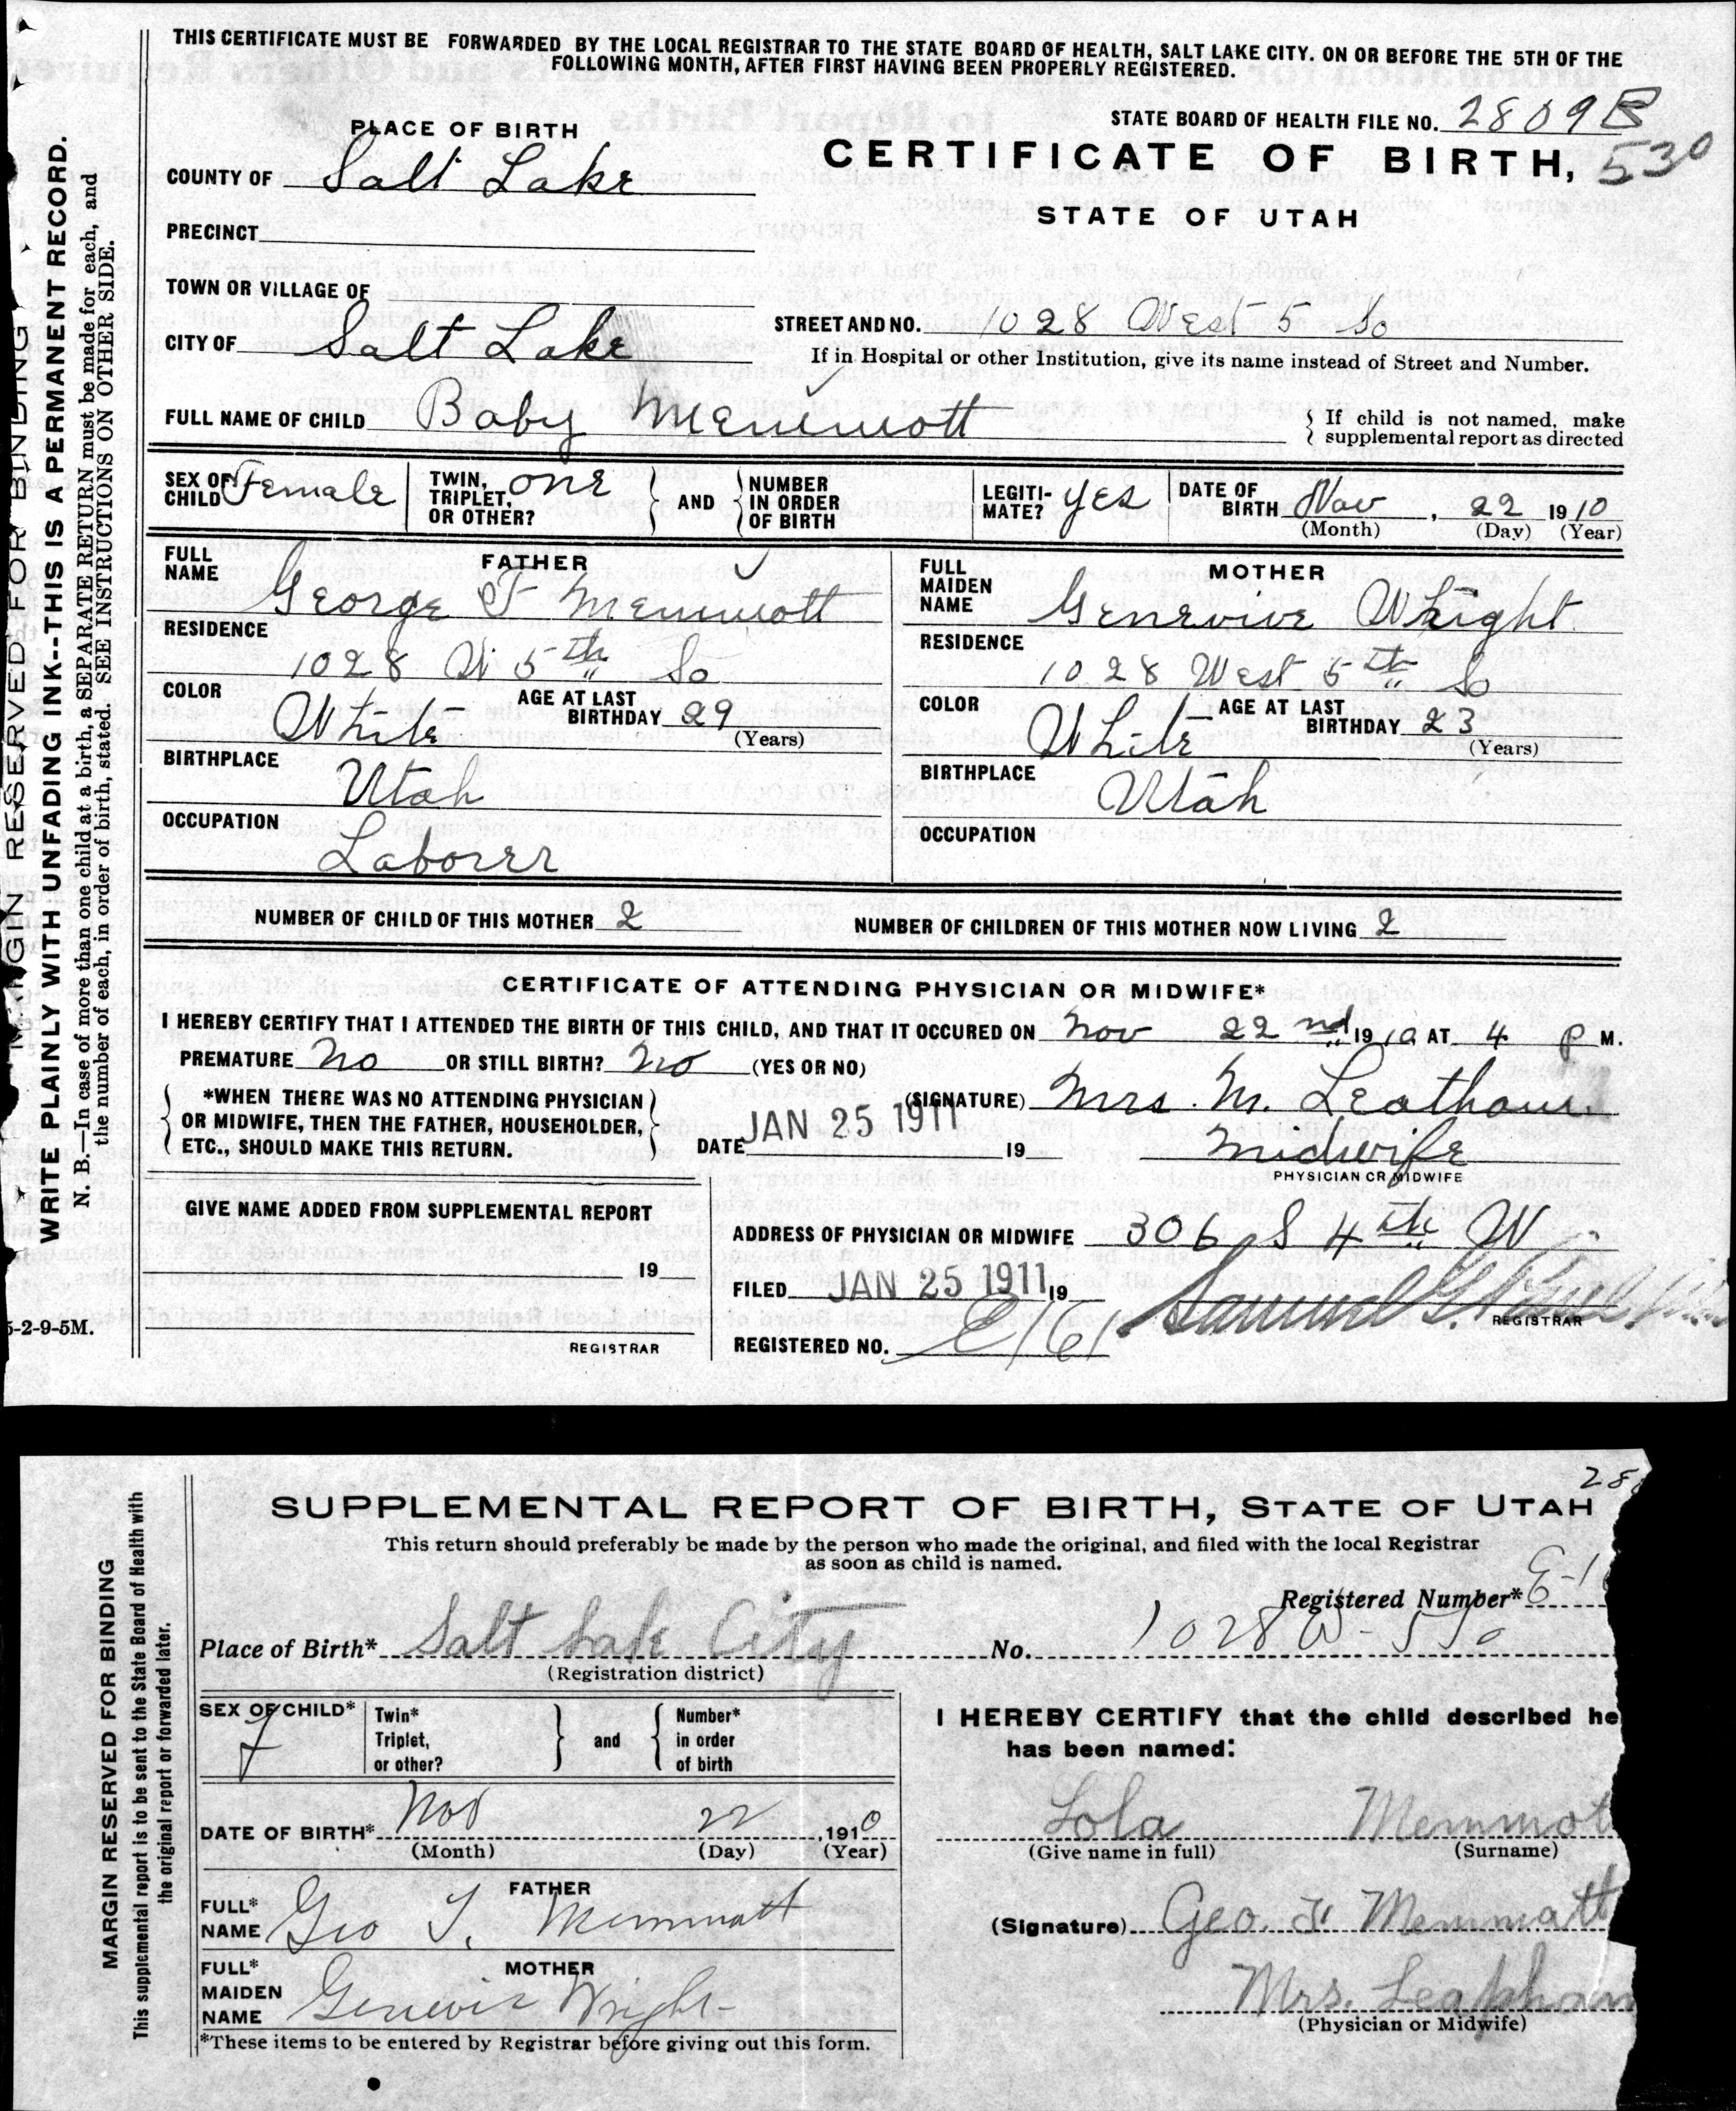 THIS CERTIFICATE MUST BE FORWARDED BY THE LOCAL REGISTRAR TO THE STATE BOARD OF HEALTH, SALT LAKE CITY. ON OR BEFORE THE 5TH OF THE
FOLLOWING MONTH, AFTER FIRST HAVING BEEN PROPERLY REGISTERED.
STATE BOARD OF HEALTH FILE NO. 2809 B
530
PLACE OF BIRTH
CERTIFICATE OF BIRTH,
STATE OF UTAH
COUNTY OF Salt Lake
PRECINCT
TOWN OR VILLAGE OF
CITY OF Salt Lake
STREET AND NO. 1028 West 5 So
If in Hospital or other Institution, give its name instead of Street and Number.
FULL NAME OF CHILD Baby Memmott
If child is not named, make
supplemental report as directed
SEX OF CHILD Female
TWIN, TRIPLET, OR OTHER? one
AND
NUMBER IN ORDER OF BIRTH
LEGITIMATE? yes
DATE OF BIRTH Nov, 22 1910
(Month) (Day) (Year)
FATHER
FULL NAME George T Memmott
RESIDENCE
1028 W 5th So
COLOR White
AGE AT LAST BIRTHDAY 29
(Years)
BIRTHPLACE
Utah
OCCUPATION
Laborer
MOTHER
FULL MAIDEN NAME Genevive Wright
RESIDENCE
1028 West 5th So
COLOR White
AGE AT LAST BIRTHDAY 23
(Years)
BIRTHPLACE
Utah
OCCUPATION
NUMBER OF CHILD OF THIS MOTHER 2
NUMBER OF CHILDREN OF THIS MOTHER NOW LIVING 2
CERTIFICATE OF ATTENDING PHYSICIAN OR MIDWIFE*
I HEREBY CERTIFY THAT I ATTENDED THE BIRTH OF THIS CHILD, AND THAT IT OCCURED ON Nov 22nd 1910 AT 4 P M.
PREMATURE No OR STILL BIRTH? No (YES OR NO)
*WHEN THERE WAS NO ATTENDING PHYSICIAN
OR MIDWIFE, THEN THE FATHER, HOUSEHOLDER,
ETC., SHOULD MAKE THIS RETURN.
(SIGNATURE) Mrs. M. Leatham
DATE JAN 25 1911 19
Midwife
PHYSICIAN OR MIDWIFE
GIVE NAME ADDED FROM SUPPLEMENTAL REPORT
19
REGISTRAR
ADDRESS OF PHYSICIAN OR MIDWIFE 306 S 4th W
FILED JAN 25 1911 19
Samuel G.
REGISTRAR
REGISTERED NO. E161
MARGIN RESERVED FOR BINDING
WRITE PLAINLY WITH UNFADING INK--THIS IS A PERMANENT RECORD.
N. B.—In case of more than one child at a birth, a SEPARATE RETURN must be made for each, and
the number of each, in order of birth, stated. SEE INSTRUCTIONS ON OTHER SIDE.
5-2-9-5M.
28
SUPPLEMENTAL REPORT OF BIRTH, STATE OF UTAH
This return should preferably be made by the person who made the original, and filed with the local Registrar
as soon as child is named.
Registered Number* E-1
Place of Birth* Salt Lake City No. 1028 W- 5 So
(Registration district)
SEX OF CHILD* f
Twin* Triplet, or other?
and
Number* in order of birth
DATE OF BIRTH* Nov 22, 1910
(Month) (Day) (Year)
FATHER
FULL* NAME Geo T. Memmott
MOTHER
FULL* MAIDEN NAME Genevie Wright
*These items to be entered by Registrar before giving out this form.
I HEREBY CERTIFY that the child described he
has been named:
Lola Memmot
(Give name in full) (Surname)
(Signature) Geo. T. Memmott
Mrs. Leapham
(Physician or Midwife)
MARGIN RESERVED FOR BINDING
This supplemental report is to be sent to the State Board of Health with
the original report or forwarded later.